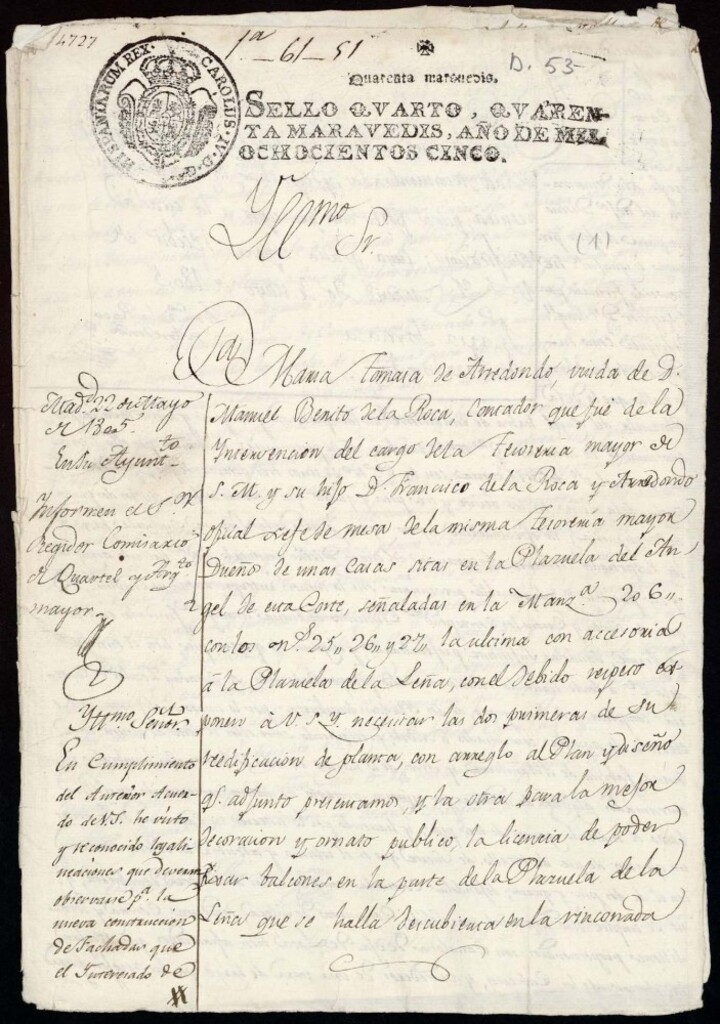 14727
1ª-61-51
D. 53-
HISPANIARUM REX. CAROLUS. IV. D. G.
Quarenta maravedis.
SELLO QVARTO, QVAREN-
TA MARAVEDIS, AÑO DE MIL
OCHOCIENTOS CINCO.
Yllmo Sr.
(1)
Maria Tomasa de Arredondo, viuda de D.
Manuel Benito de la Roca, Contador que fué de la
Intervencion del cargo de la Tesoreria mayor de
S. M. y su hijo D. Francisco de la Roca y Arredondo
oficial Xefe de mesa de la misma Tesoreria mayor
Dueño de unas casas sitas en la Plazuela del An
gel de esta Corte, señaladas en la Manzª 206,,
con los nos 25,, 26,, y 27,, la ultima con accesoria
à la Plazuela de la Leña, con el debido respeto ex
ponen à V. S. Y. necesitar las dos primeras de su
reedificacion de planta, con arreglo al Plan y diseño
qe adjunto presentamos, y la otra para la mejor
decoracion y ornato publico, la licencia de poder
balcones en la parte de la Plazuela de la
Leña que se halla descubierta en la rinconada
Madd 22 de Mayo
de 1805.
En su Ayuntto
Informen el Sr
Regidor Comisario
de Quartel y Arqto
mayor
Yltmo Señor
En Cumplimiento
del Anterior Acuer
do de V.S. he visto
y reconocido las ali
neaciones que deveran
observarse pª la
nueva construccion
de Fachadas que
el Interesado de